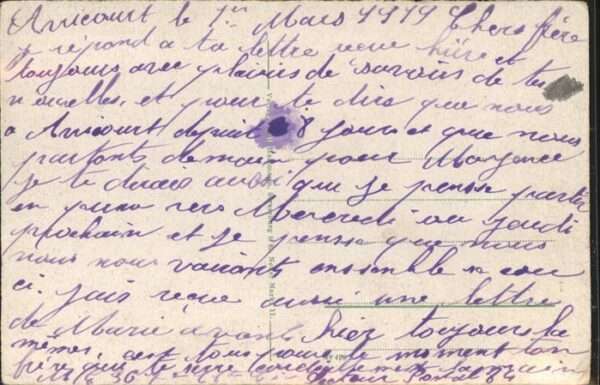 Avricourt le 1er Mars 1919 Chers frère
je répond a ta lettre reçue hière et
toujours avec plaisir de savoir de tes
nouvelles, et pour te dire que nous
a Avricourt depuit 8 jours et que nous
partons demain pour Mayence
je te dirais aussi que je pense partir
en perm vers Mercredi ou jeudi
prochain et je pense que nous
nous nous voirions ensemble ce cou
ci. jais reçue aussi une lettre
de Marie avant hier toujours la
mêmes, cest tous pour le moment ton
frère que te serre cordialement la main